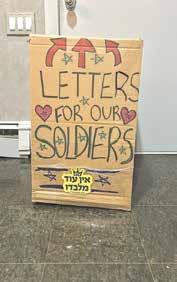 LETTERS
FOR OUR
SOLDIERS
אין עוד
מלבדו